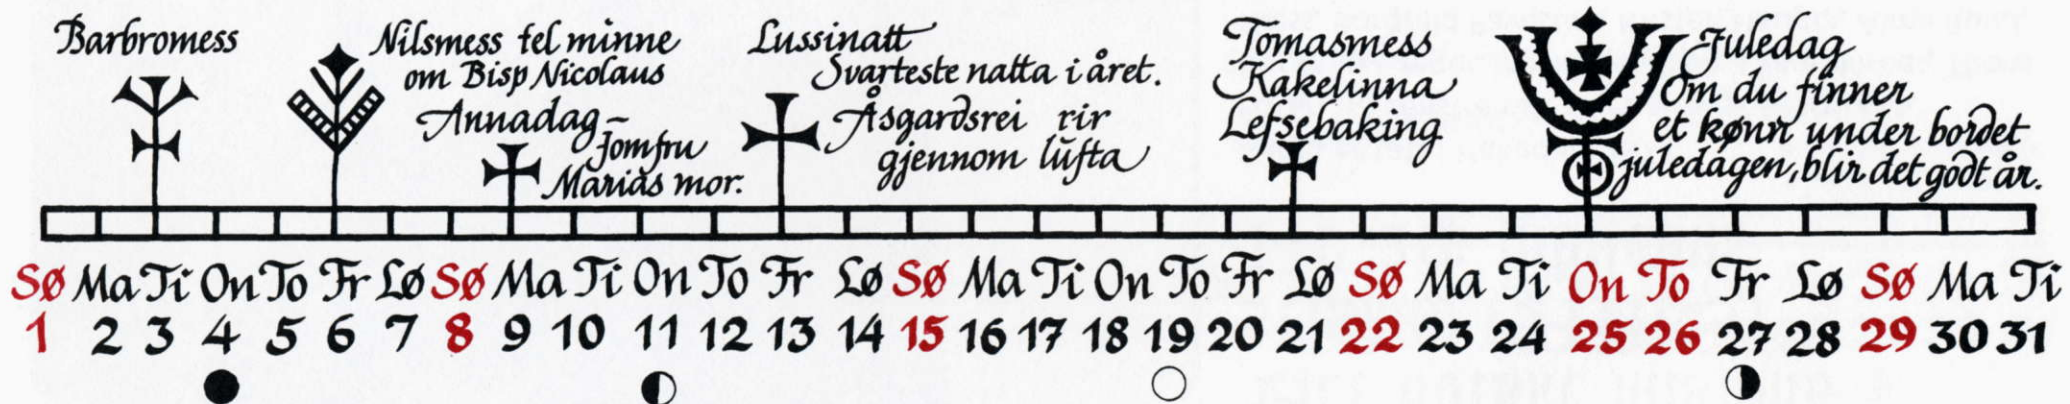 Barbromess
Nilsmess tel minne
om Bisp Nicolaus
Annadag –
Jomfru
Marias mor.
Lussinatt
Svarteste natta i året.
Åsgardsrei rir
gjennom lufta
Tomasmess
Kakelinna
Lefsebaking
Juledag
Om du finner
et kønn under bordet
juledagen, blir det godt år.
Sø Ma Ti On To Fr Lø Sø Ma Ti On To Fr Lø Sø Ma Ti On To Fr Lø Sø Ma Ti On To Fr Lø Sø Ma Ti
1 2 3 4 5 6 7 8 9 10 11 12 13 14 15 16 17 18 19 20 21 22 23 24 25 26 27 28 29 30 31